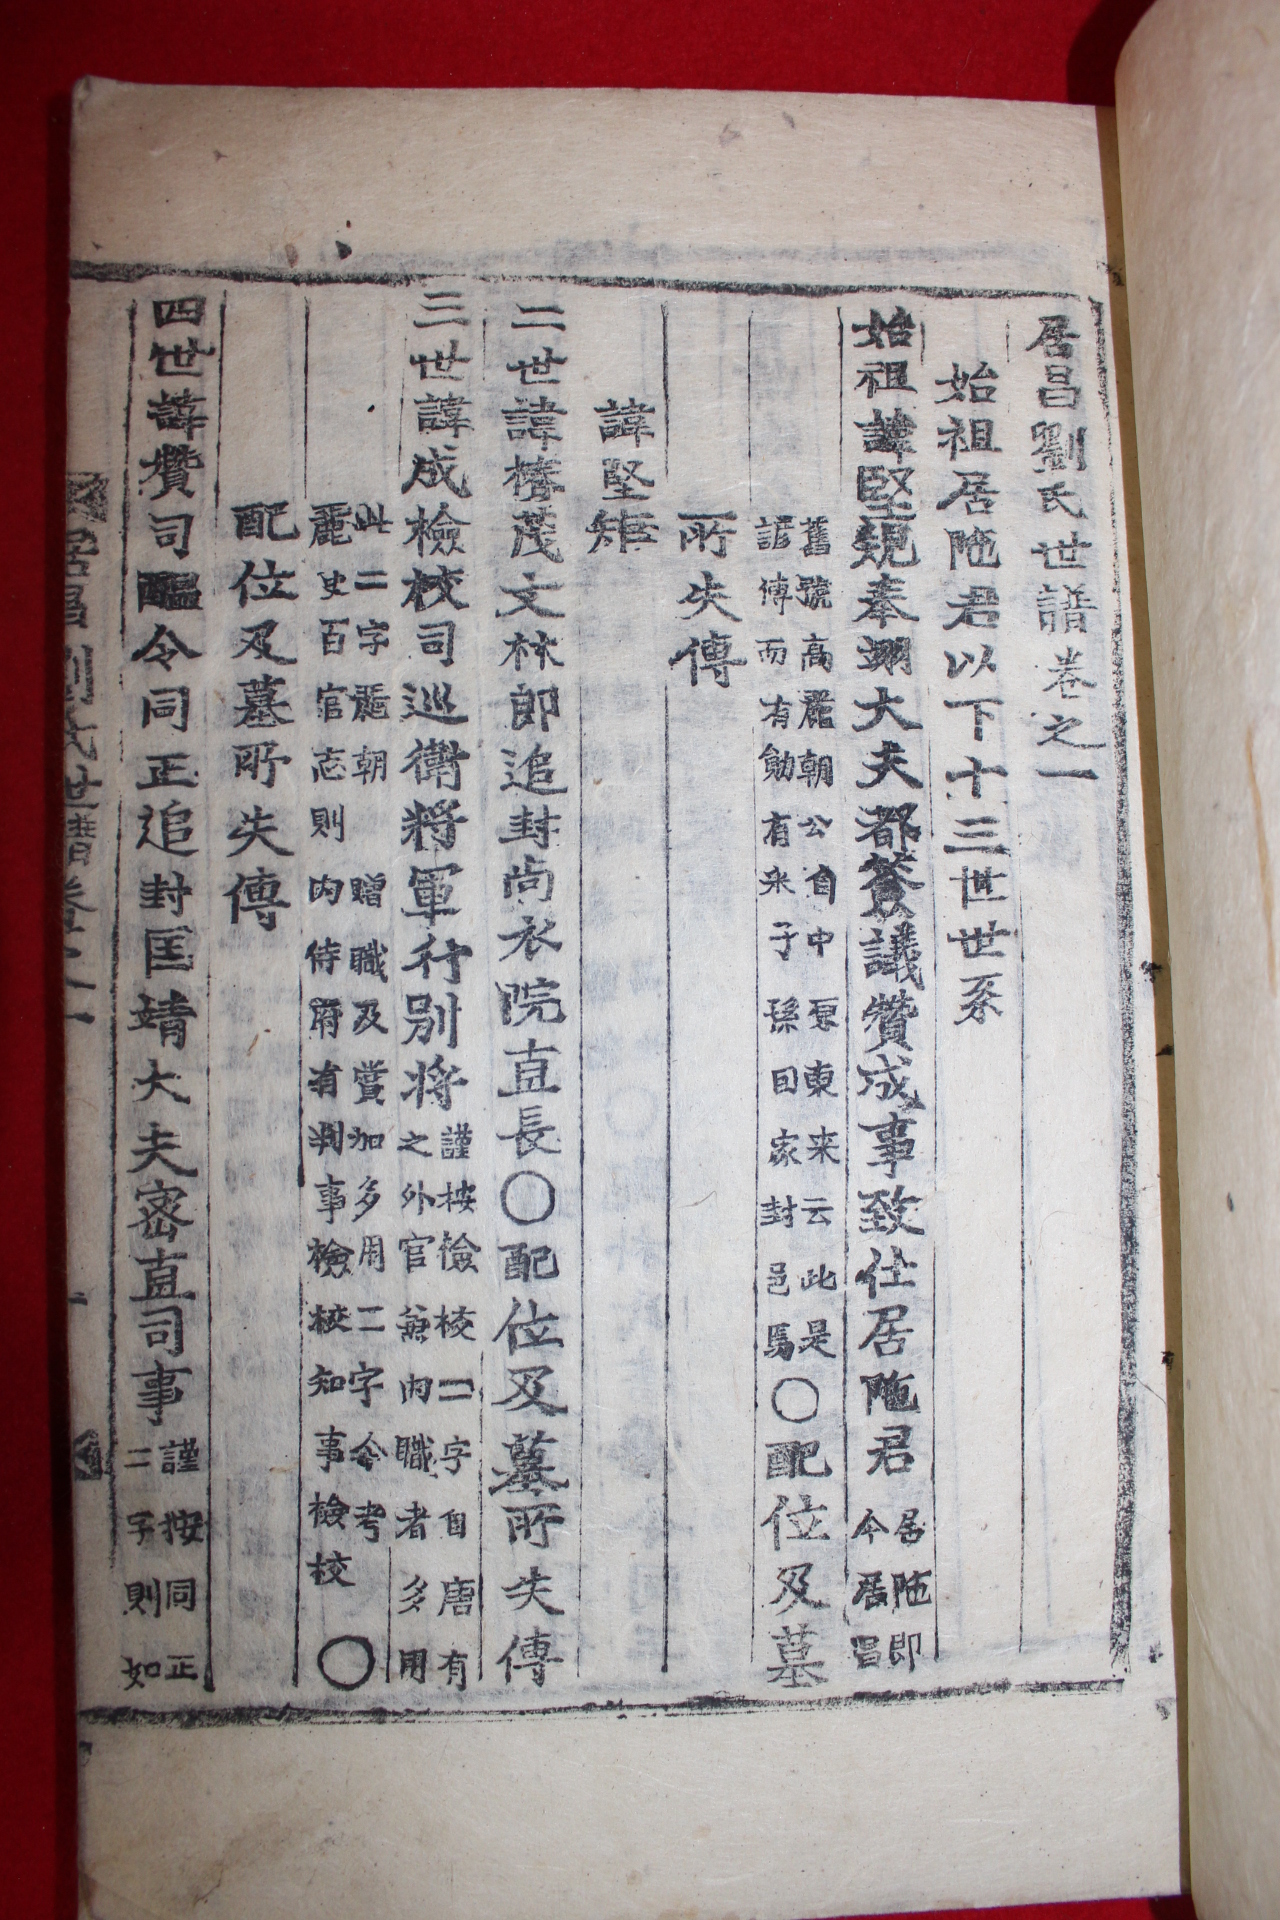 居昌劉氏世譜卷之一
始祖居陁君以下十三世世系
始祖諱堅規奉翊大夫都僉議贊成事致仕居陁君
居陁即
今居昌
舊號高麗朝公自中原東来云此是
諺傳而有勛有采子孫因家封邑焉
〇配位及墓
所失傳
諱堅矩
二世諱榜茂文林郎追封尚衣院直長〇配位及墓所失傳
三世諱成檢校司巡衛將軍行別將
謹按檢校二字自唐有
之外官兼內職者多用
此二字麗朝贈職及賞加多用二字今考
麗史百官志則內侍府有判事檢校知事檢校
〇
配位及墓所失傳
四世諱攢司醞令同正追封匡靖大夫密直司事
謹按同正
二字則如
居昌劉氏世譜卷之一
一